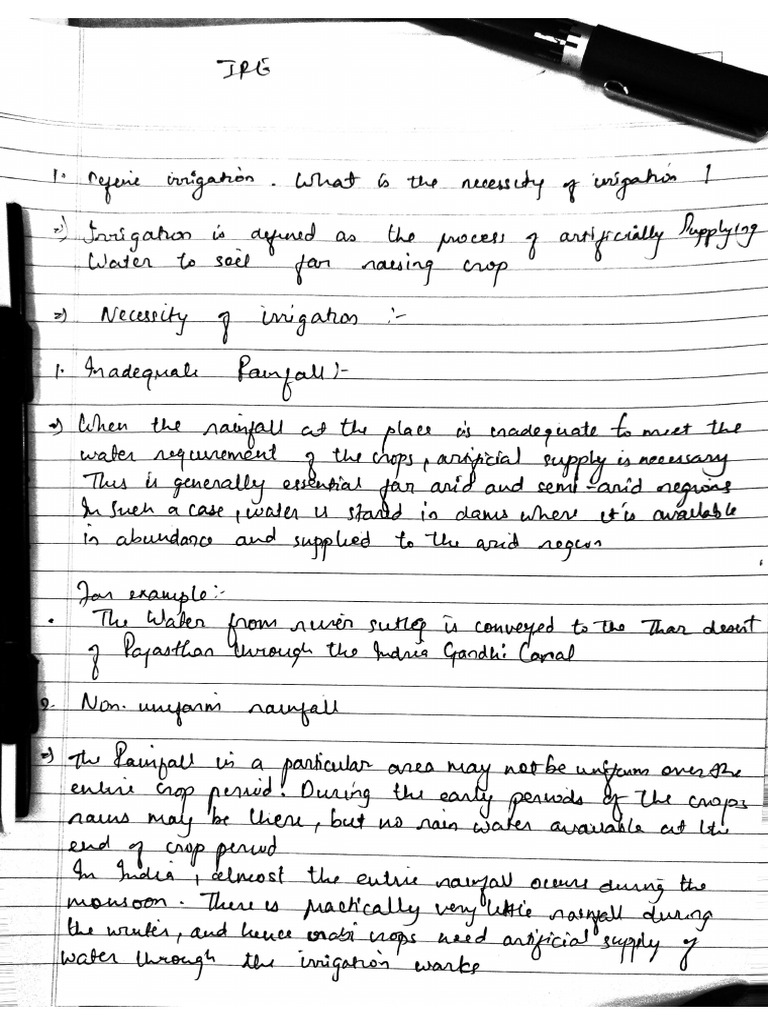 IRE
1. Define irrigation. What is the necessity of irrigation ?
=) Irrigation is defined as the process of artificially Supplying
Water to soil for raising crop
=) Necessity of irrigation :-
1. Inadequate Rainfall :-
=) When the rainfall at the place is inadequate to meet the
water requirement of the crops, artificial supply is necessary
This is generally essential for arid and semi-arid regions
In such a case, water is stored in dams where it is available
in abundance and supplied to the arid region
For example :-
• The Water from river sutlej is conveyed to the Thar desert
of Rajasthan through the Indria Gandhi Canal
2. Non-uniform rainfall
=) The Rainfall in a particular area may not be uniform over the
entire crop period. During the early periods of the crops
rains may be there, but no rain water available at the
end of crop period
In India, almost the entire rainfall occurs during the
monsoon. There is practically very little rainfall during
the winter, and hence rabi crops need artificial supply of
water through the irrigation works